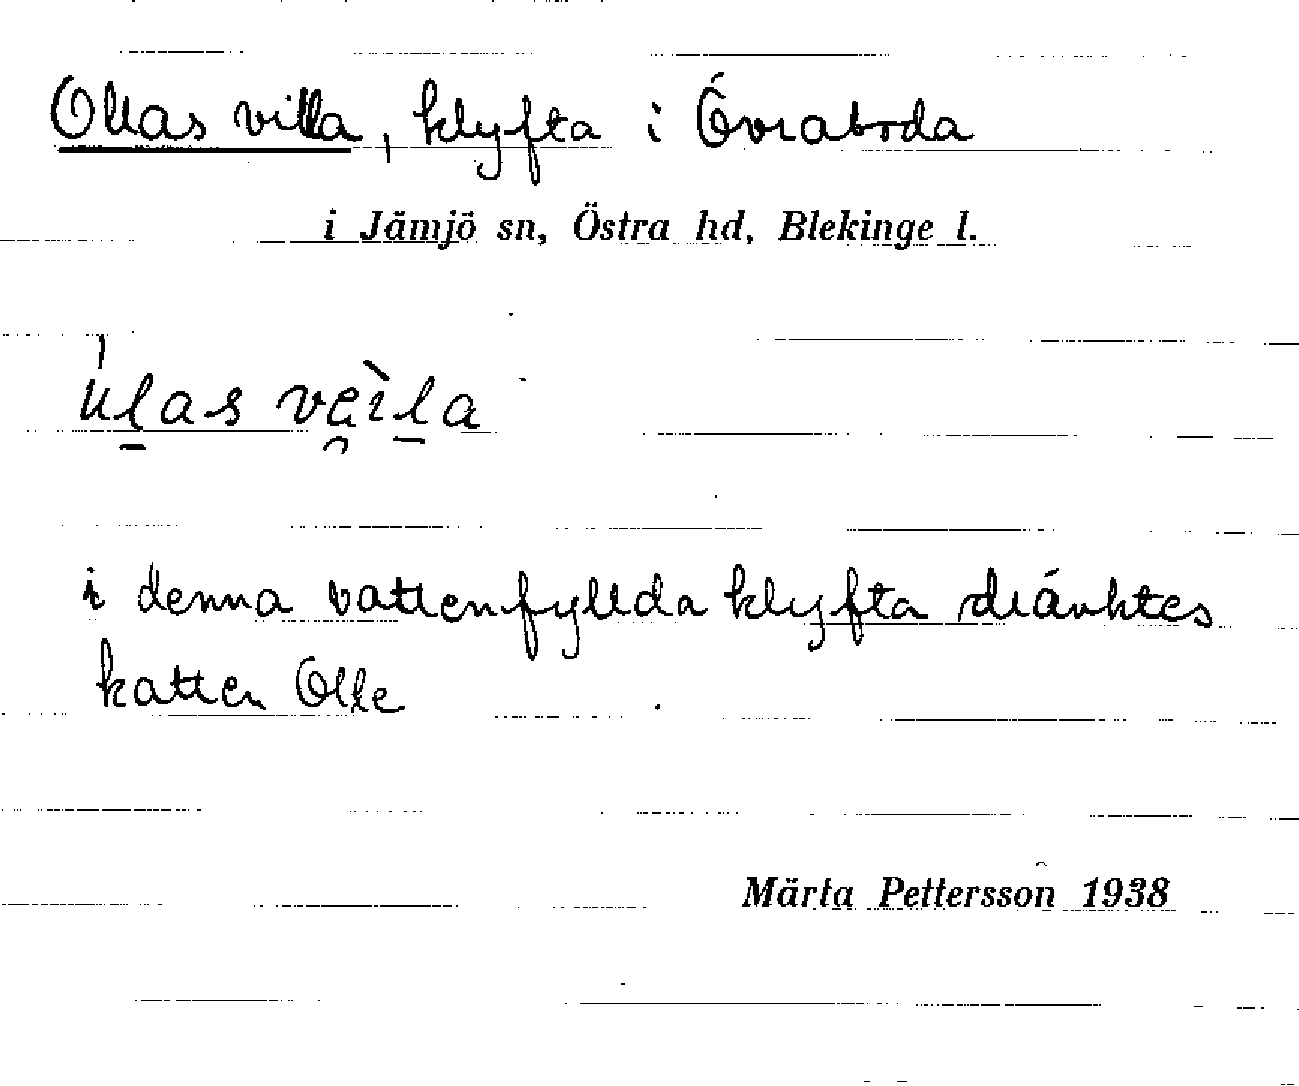 Ollas villa, klyfta i Övraboda
i Jämjö sn, Östra hd, Blekinge l.
i denna vattenfyllda klyfta dränktes
katten Olle
Märta Pettersson 1938